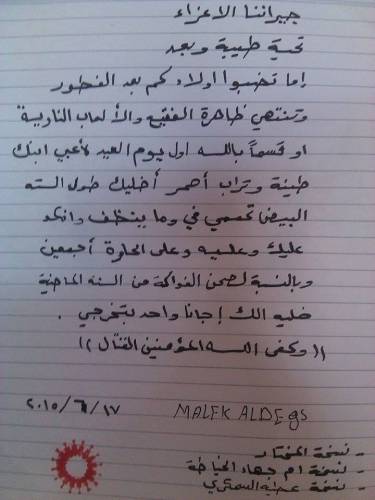 جيراننا الاعزاء
تحية طيبة وبعد
إما تضبوا اولادكم بعد الفطور
وتنتهي ظاهرة الفقيع والألعاب النارية
او قسماً بالله اول يوم العيد لأعبي ابنك
طينة وتراب أحمر أخليك طول السته
البيض تحممي في وما ينظف وانكد
عليك وعليه وعلى الحارة أجمعين
وبالنسبة لصحن الفواكه من السنه الماضية
خليه الك إجانا واحد بتخرجي .
(( وكفى الله المؤمنين القتال ))
٢٠١٥/٦/١٧
MALEK ALDEgs
- نسخة المختار
- نسخة ام جهاد الخياطة
- نسخة السمكري